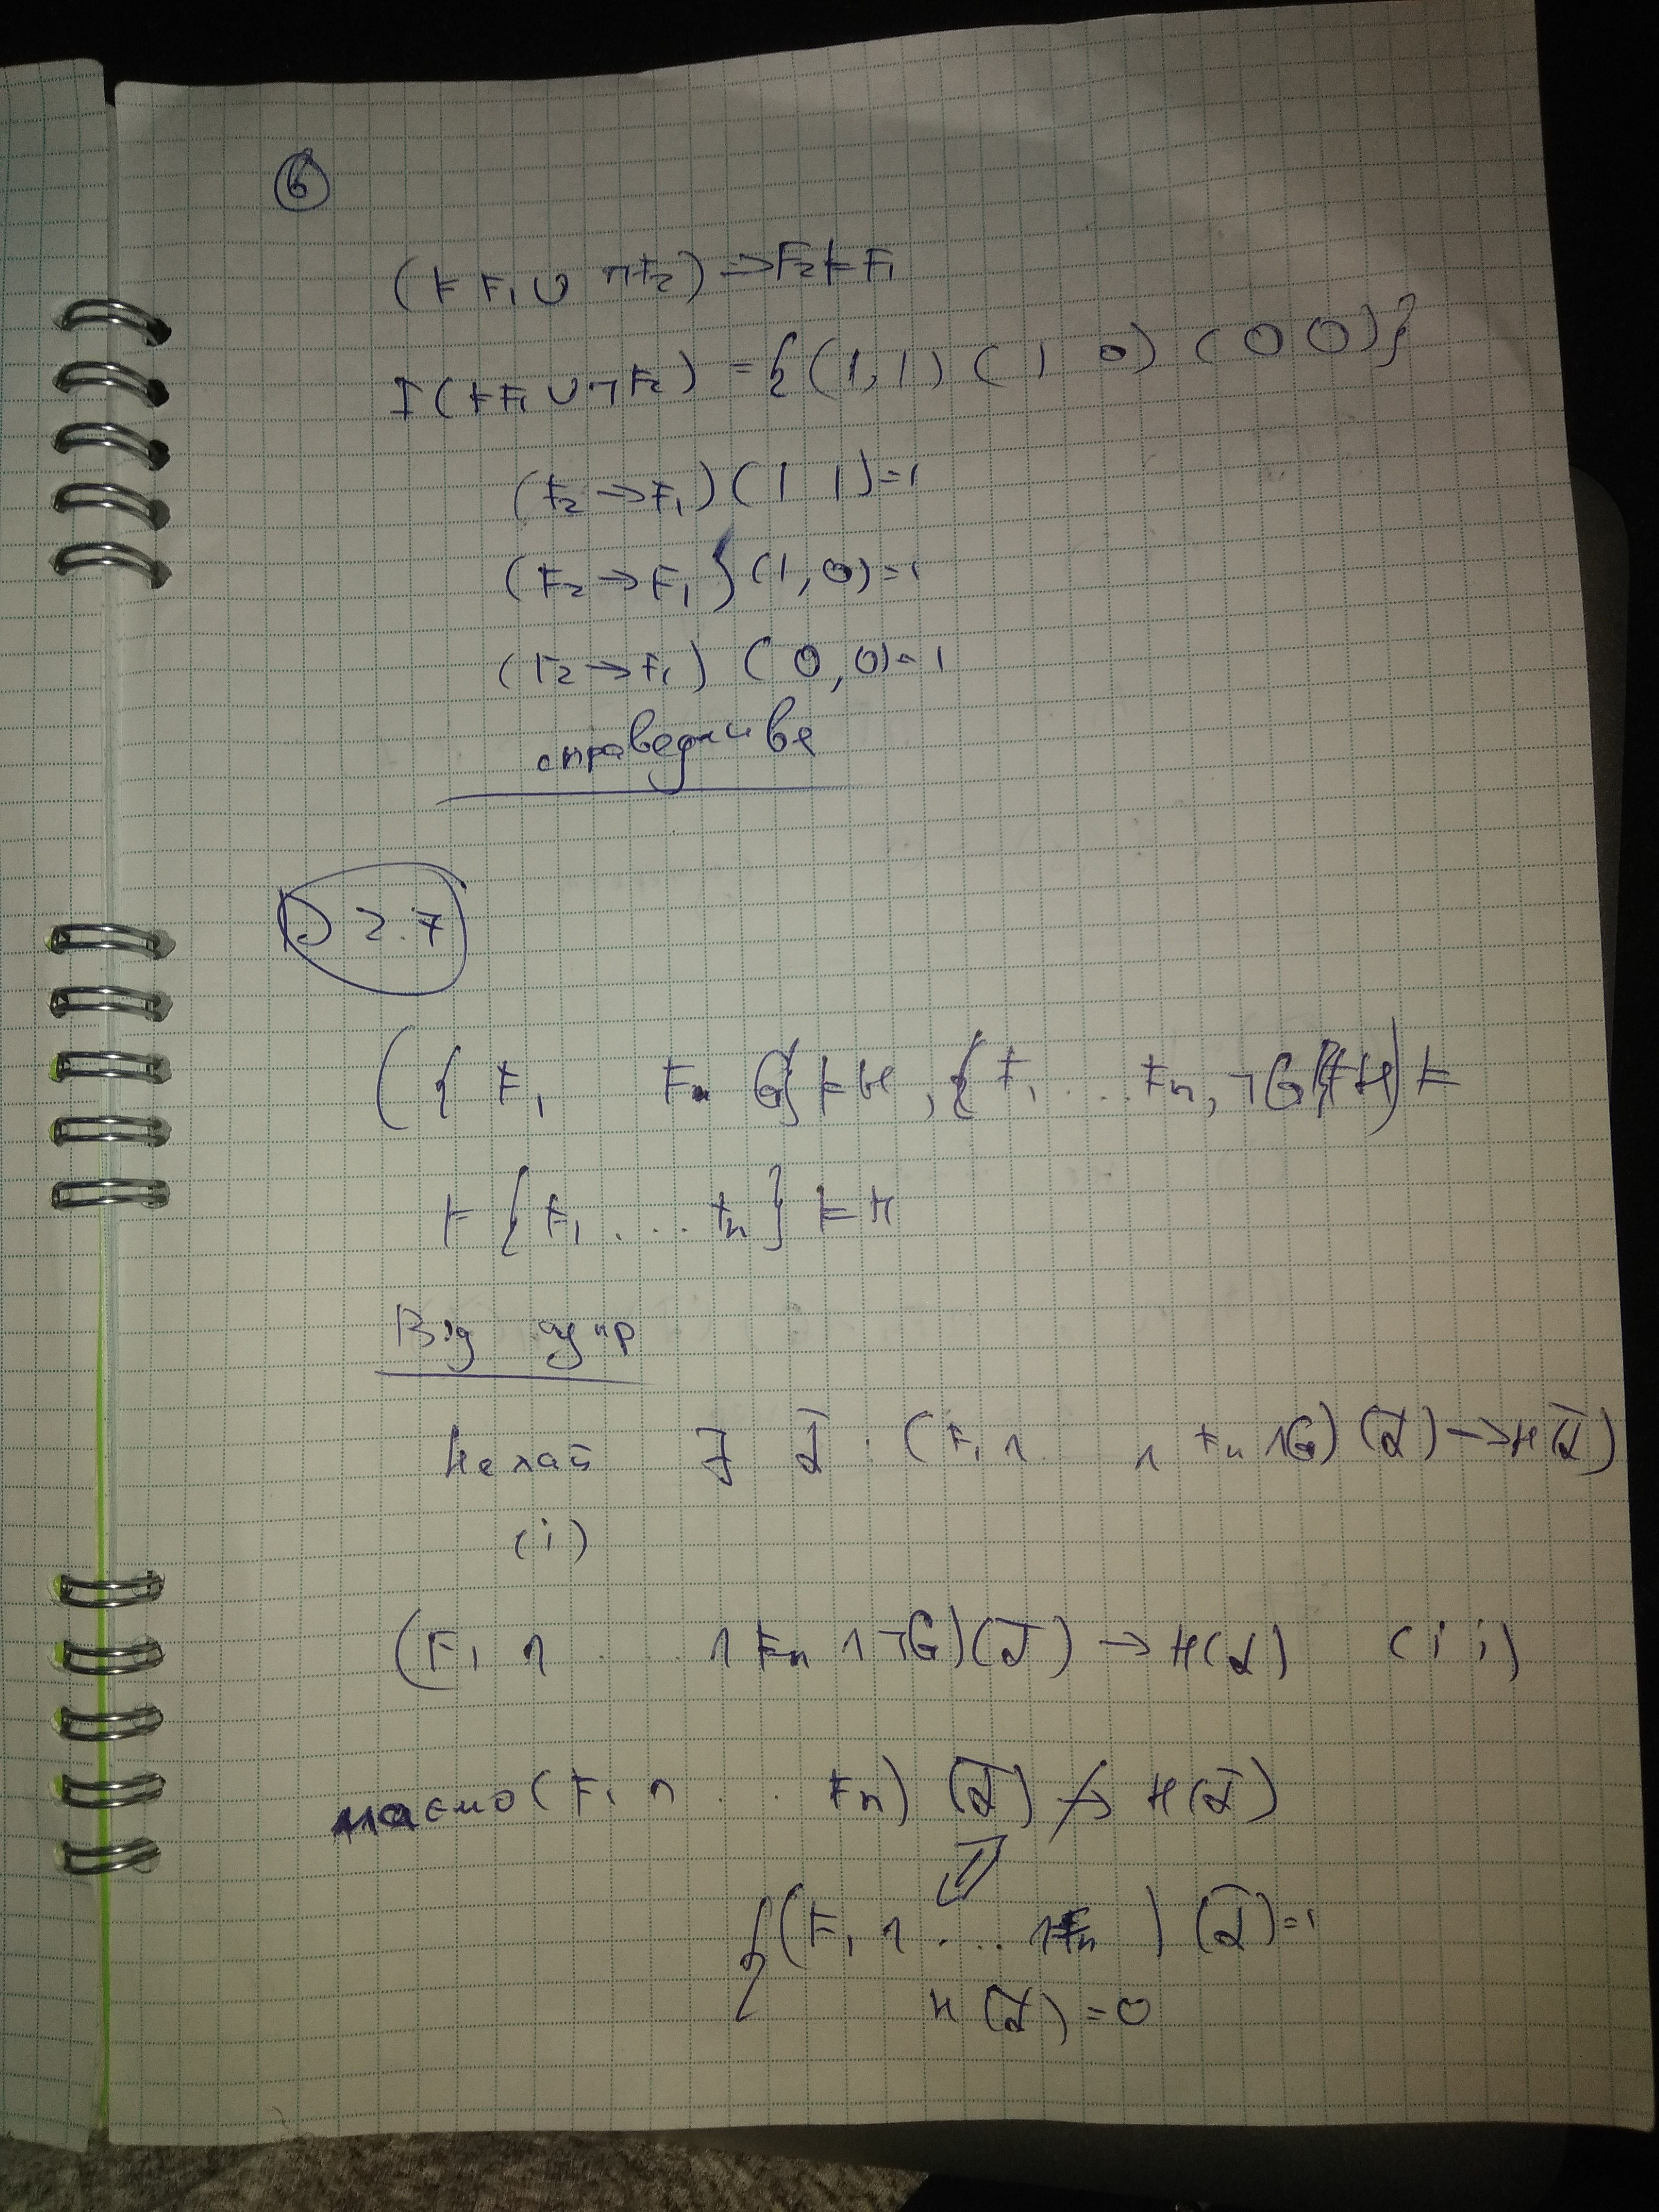 б
(⊨ F₁ ∪ ¬F₂) ⇒ F₂ ⊨ F₁
I(⊨F₁ ∪ ¬F₂) = {(1,1) (1 0) (0 0)}
(F₂ → F₁)(1 1)=1
(F₂ → F₁)(1,0)=1
(F₂ → F₁) (0,0)=1
справедливе
D 2.7
({F₁ Fₙ G} ⊨ H, {F₁ ... Fₙ, ¬G} ⊨ H) ⊨
⊨ {F₁ ... Fₙ} ⊨ H
Від супр
Нехай ∃ α̅ : (F₁ ∧ ∧ Fₙ ∧ G)(α̅) → H(α̅)
(i)
(F₁ ∧ ... ∧ Fₙ ∧ ¬G)(α̅) → H(α) (ii)
маємо (F₁ ∧ ... Fₙ) (α̅) ↛ H(α̅)
⇔
{(F₁ ∧ ... ∧ Fₙ) (α̅)=1
H(α̅)=0